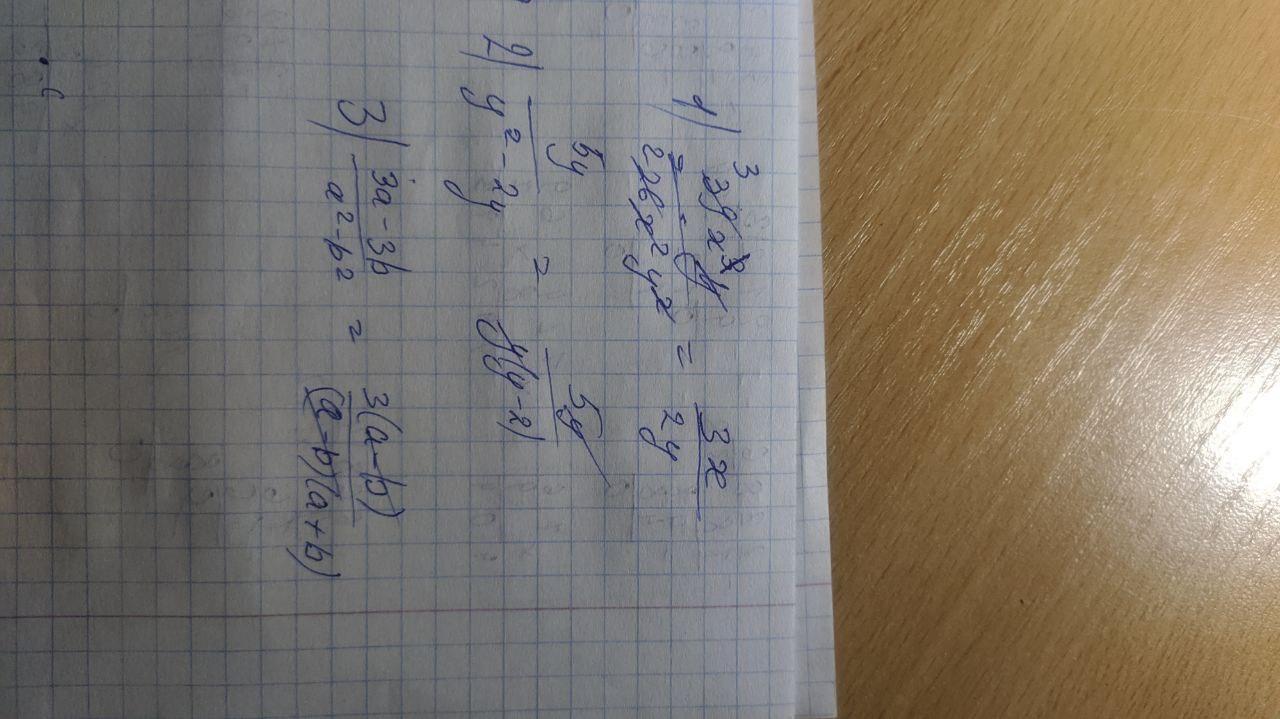 1) 3 39x³y / 2 26x²y² = 3x / 2y
2) 5y / y² - 2y = 5y / y(y-2)
3) 3a - 3b / a² - b² = 3(a-b) / (a-b)(a+b)